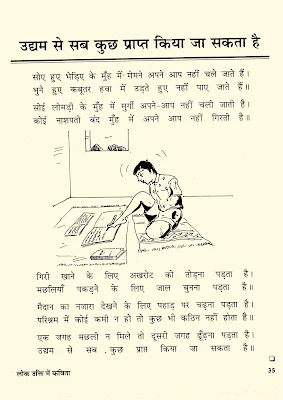 उद्यम से सब कुछ प्राप्त किया जा सकता है
सोए हुए भेड़िए के मुँह में मेमने अपने आप नहीं चले जाते हैं।
भुने हुए कबूतर हवा में उड़ते हुए नहीं पाए जाते हैं॥
सोई लोमड़ी के मुँह में मुर्गी अपने-आप नहीं चली जाती है।
कोई नाशपाती बंद मुँह में अपने आप नहीं गिरती है॥
गिरी खाने के लिए अखरोट को तोड़ना पड़ता है।
मछलियाँ पकड़ने के लिए जाल बुनना पड़ता है॥
मैदान का नजारा देखने के लिए पहाड़ पर चढ़ना पड़ता है।
परिश्रम में कोई कमी न हो तो कुछ भी कठिन नहीं होता है॥
एक जगह मछली न मिले तो दूसरी जगह ढूँढ़ना पड़ता है।
उद्यम से सब कुछ प्राप्त किया जा सकता है॥
लोक उक्ति में कविता
35